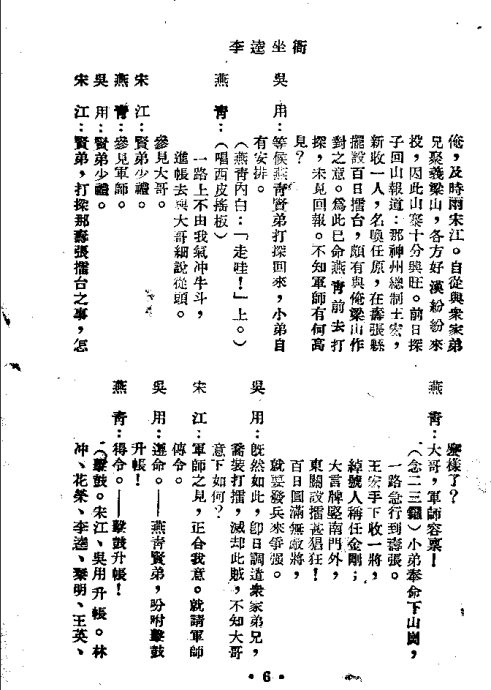 李逵坐衙
俺，及時雨宋江。自從與衆家弟
兄聚義梁山，各方好漢紛紛來
投，因此山寨十分興旺。前日探
子回山報道：那神州總制王宏，
新收一人，名喚任原，在壽張縣
擺設百日擂台，頗有與俺梁山作
對之意。爲此已命燕青前去打
探，未見回報。不知軍師有何高
見？
吳　用：等候燕青賢弟打探回來，小弟自
有安排。
（燕青內白：「走哇！」上。）
燕　青：（唱西皮搖板）
一路上不由我氣冲牛斗，
進帳去與大哥細說從頭。
參見大哥。
宋　江：賢弟少禮。
燕　青：參見軍師。
吳　用：賢弟少禮。
宋　江：賢弟，打探那壽張擂台之事，怎
麽樣了？
燕　青：大哥，軍師容稟！
（念二三鑼）小弟奉命下山崗，
一路急行到壽張。
王宏手下收一將，
綽號人稱任金剛；
大言牌竪南門外，
東關設擂甚猖狂！
百日圓滿無敵將，
就要發兵來爭强。
吳　用：旣然如此，卽日調遣衆家弟兄，
喬裝打擂，滅却此賊，不知大哥
意下如何？
宋　江：軍師之見，正合我意。就請軍師
傳令。
吳　用：遵命。——燕青賢弟，吩咐擊鼓
升帳！
燕　青：得令。——擊鼓升帳！
（擊鼓。宋江、吳用升帳。林
冲、花榮、李逵、秦明、王英、
·6·